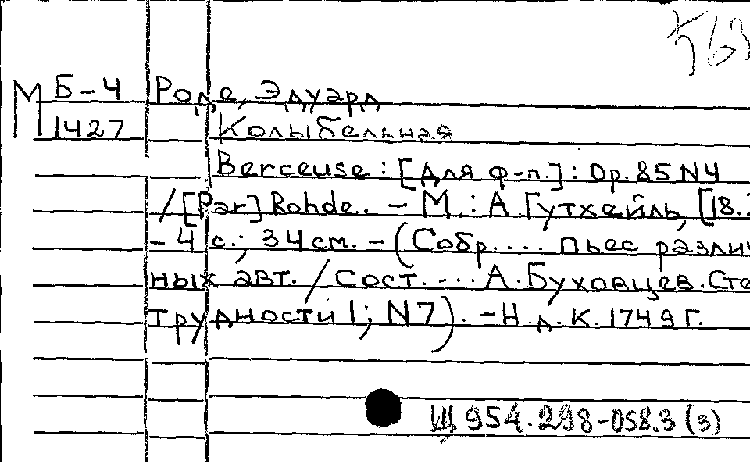 563
М Б-4 Роде, Эдуард
1427 Колыбельная
Berceuse : [Для ф-п.] : Op. 85 N4
/ [Par] Rohde. - М. : А. Гутхейль, [18.
- 4 с.; 34 см. - (Собр.... пьес различ
ных авт. / Сост.... А. Буховцев. Сте
трудности 1; N7). - Н. д. К. 1749 Г.
Щ 954.298-058.3 (3)